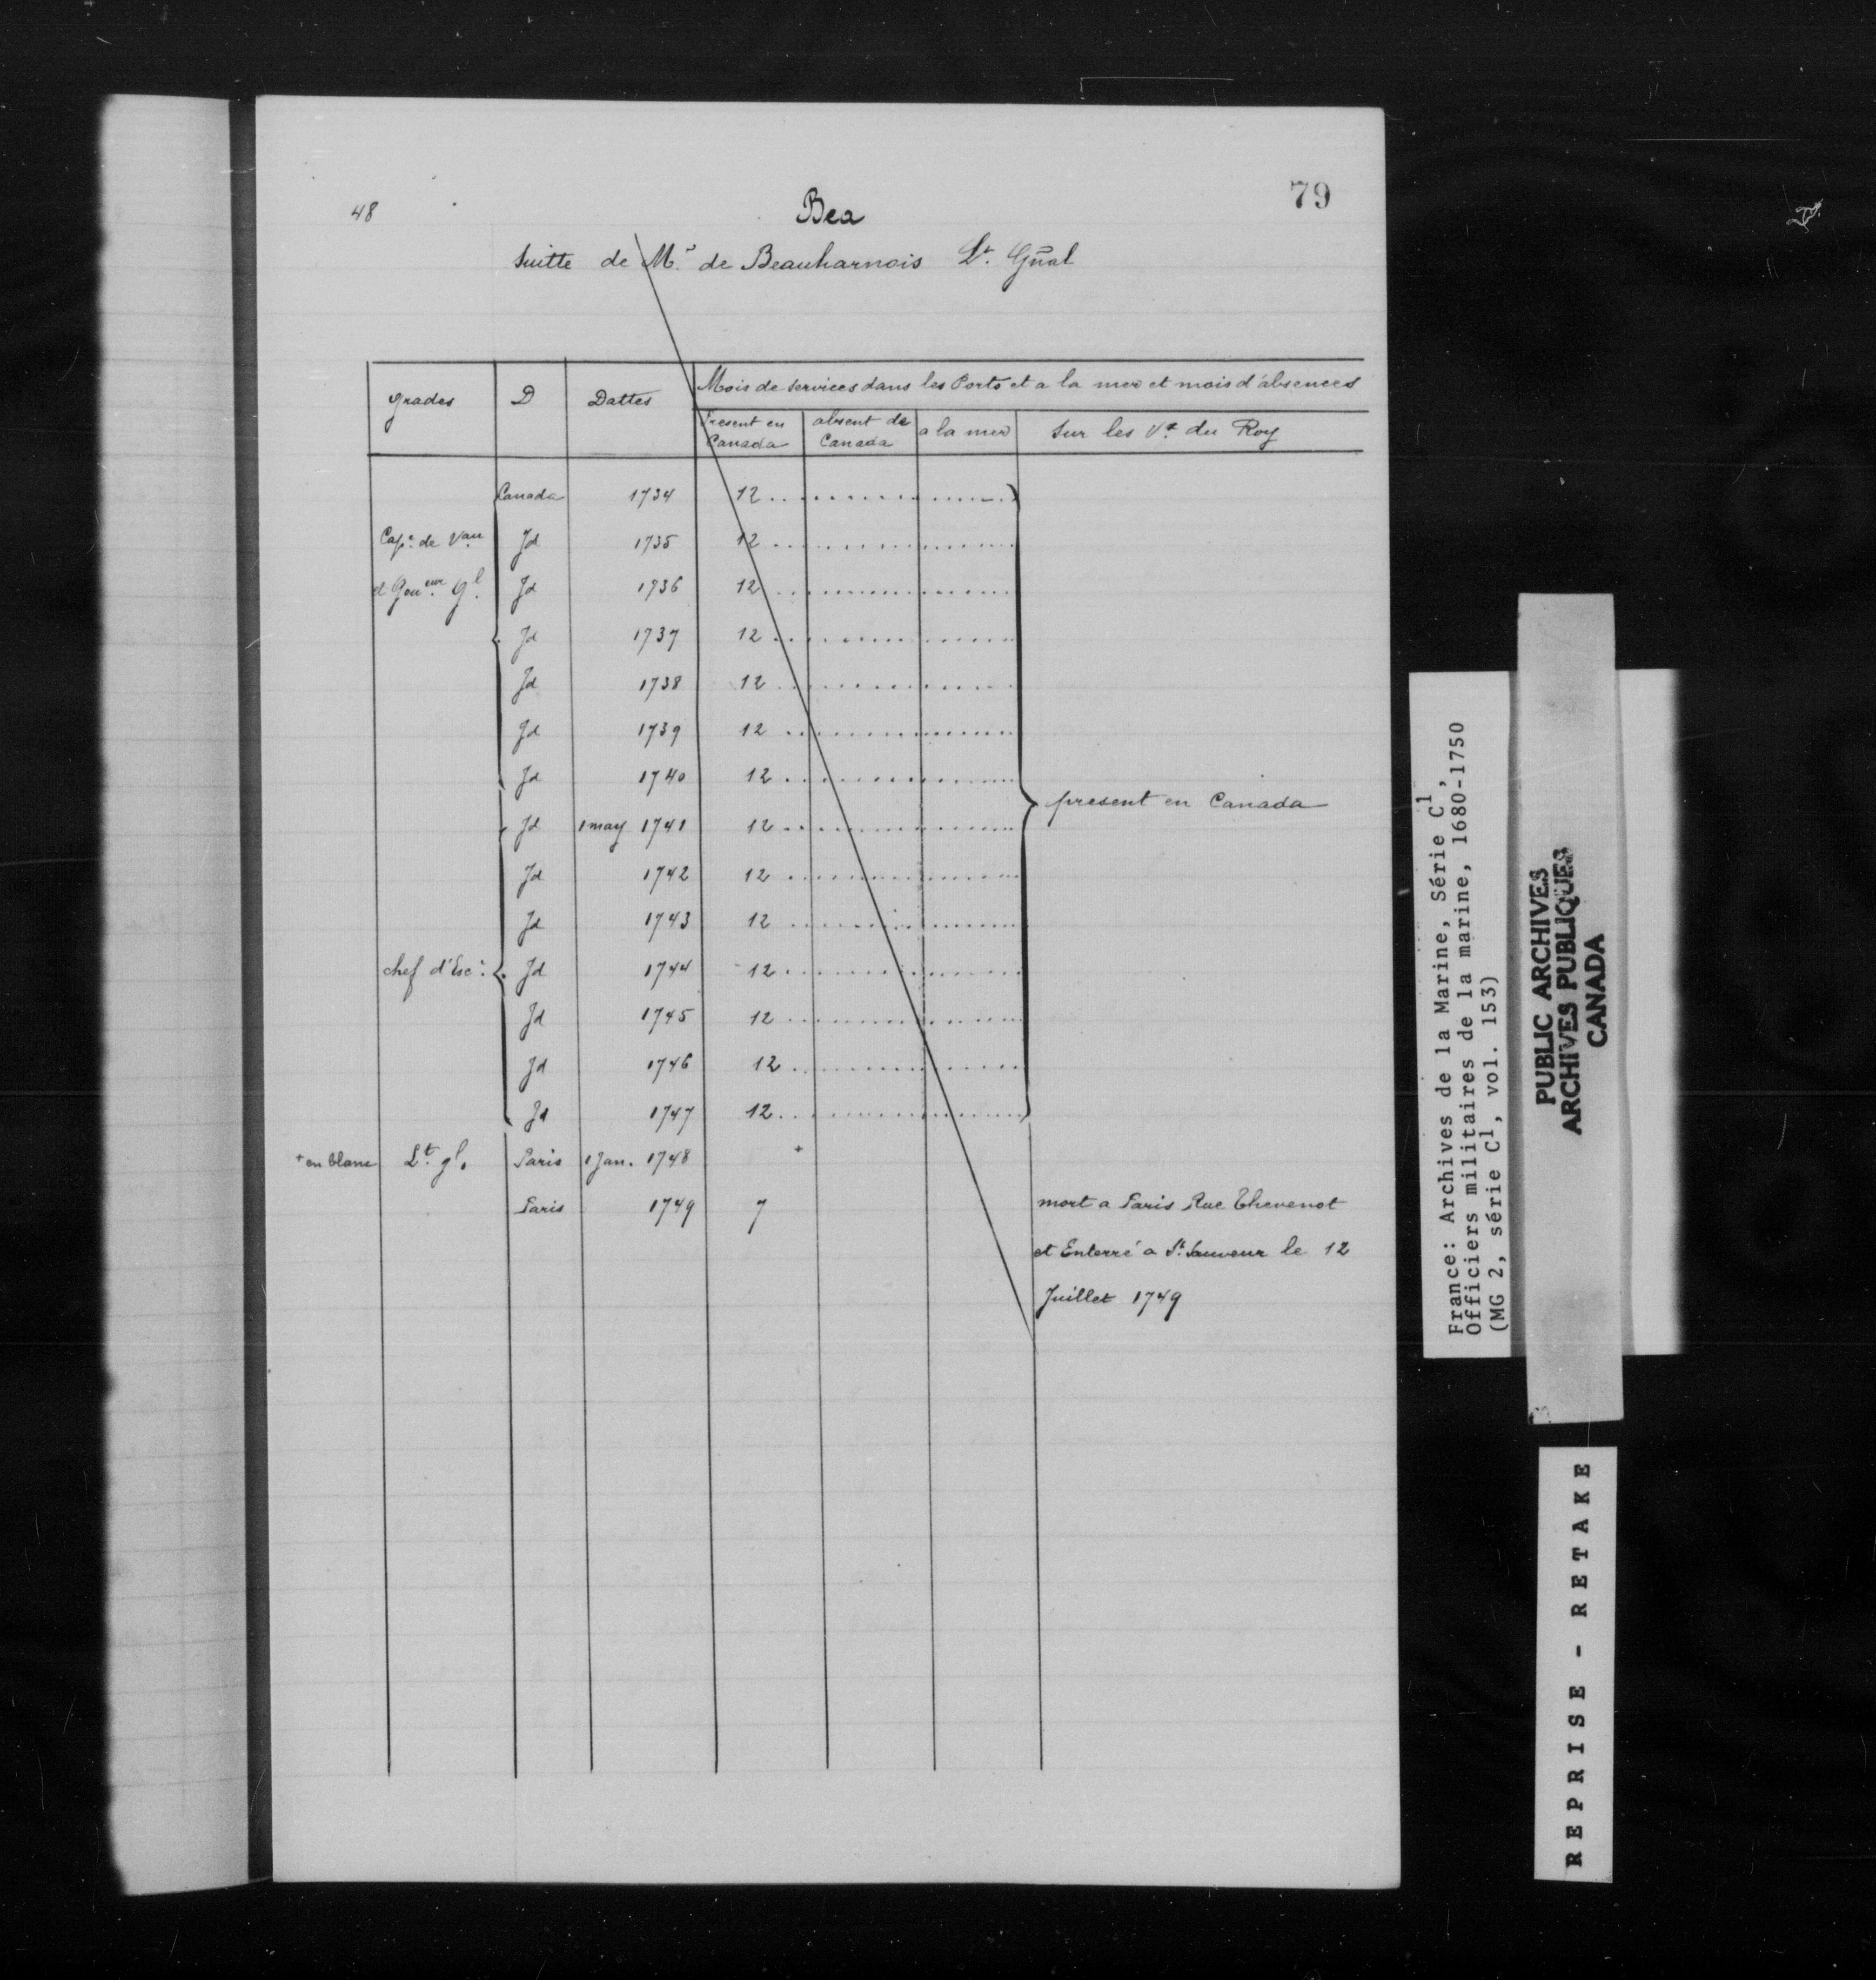 79
48
Bea
Suitte de Mr de Beauharnois Lt. Gñal
grades D Dattes Mois de services dans les Ports et a la mer et mois d'absences
Present en Canada absent de Canada a la mer Sur les Vx du Roy
Canada 1734 12
Cape de Vau Jd 1735 12
et Gouveur Gl Jd 1736 12
Jd 1737 12
Jd 1738 12
Jd 1739 12
Jd 1740 12
present en Canada
Jd 1 may 1741 12
Jd 1742 12
Jd 1743 12
chef d'Esc: Jd 1744 12
Jd 1745 12
Jd 1746 12
Jd 1747 12
+ en blanc Lt. gl. Paris 1 Jan. 1748 +
Paris 1749 7 mort a Paris Rue Thevenot
et Enterré a St. Sauveur le 12
Juillet 1749
France: Archives de la Marine, Série C1,
Officiers militaires de la marine, 1680-1750
(MG 2, série C1, vol. 153)
PUBLIC ARCHIVES
ARCHIVES PUBLIQUES
CANADA
REPRISE - RETAKE